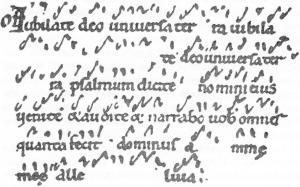 Off Iubilate deo uniuersa ter ra iubila
te deo uniuersa ter
ra psalmum dicite nomini eius
uenite & audite & narrabo uob omnes
quanta fecit dominus anime
meę alle luia